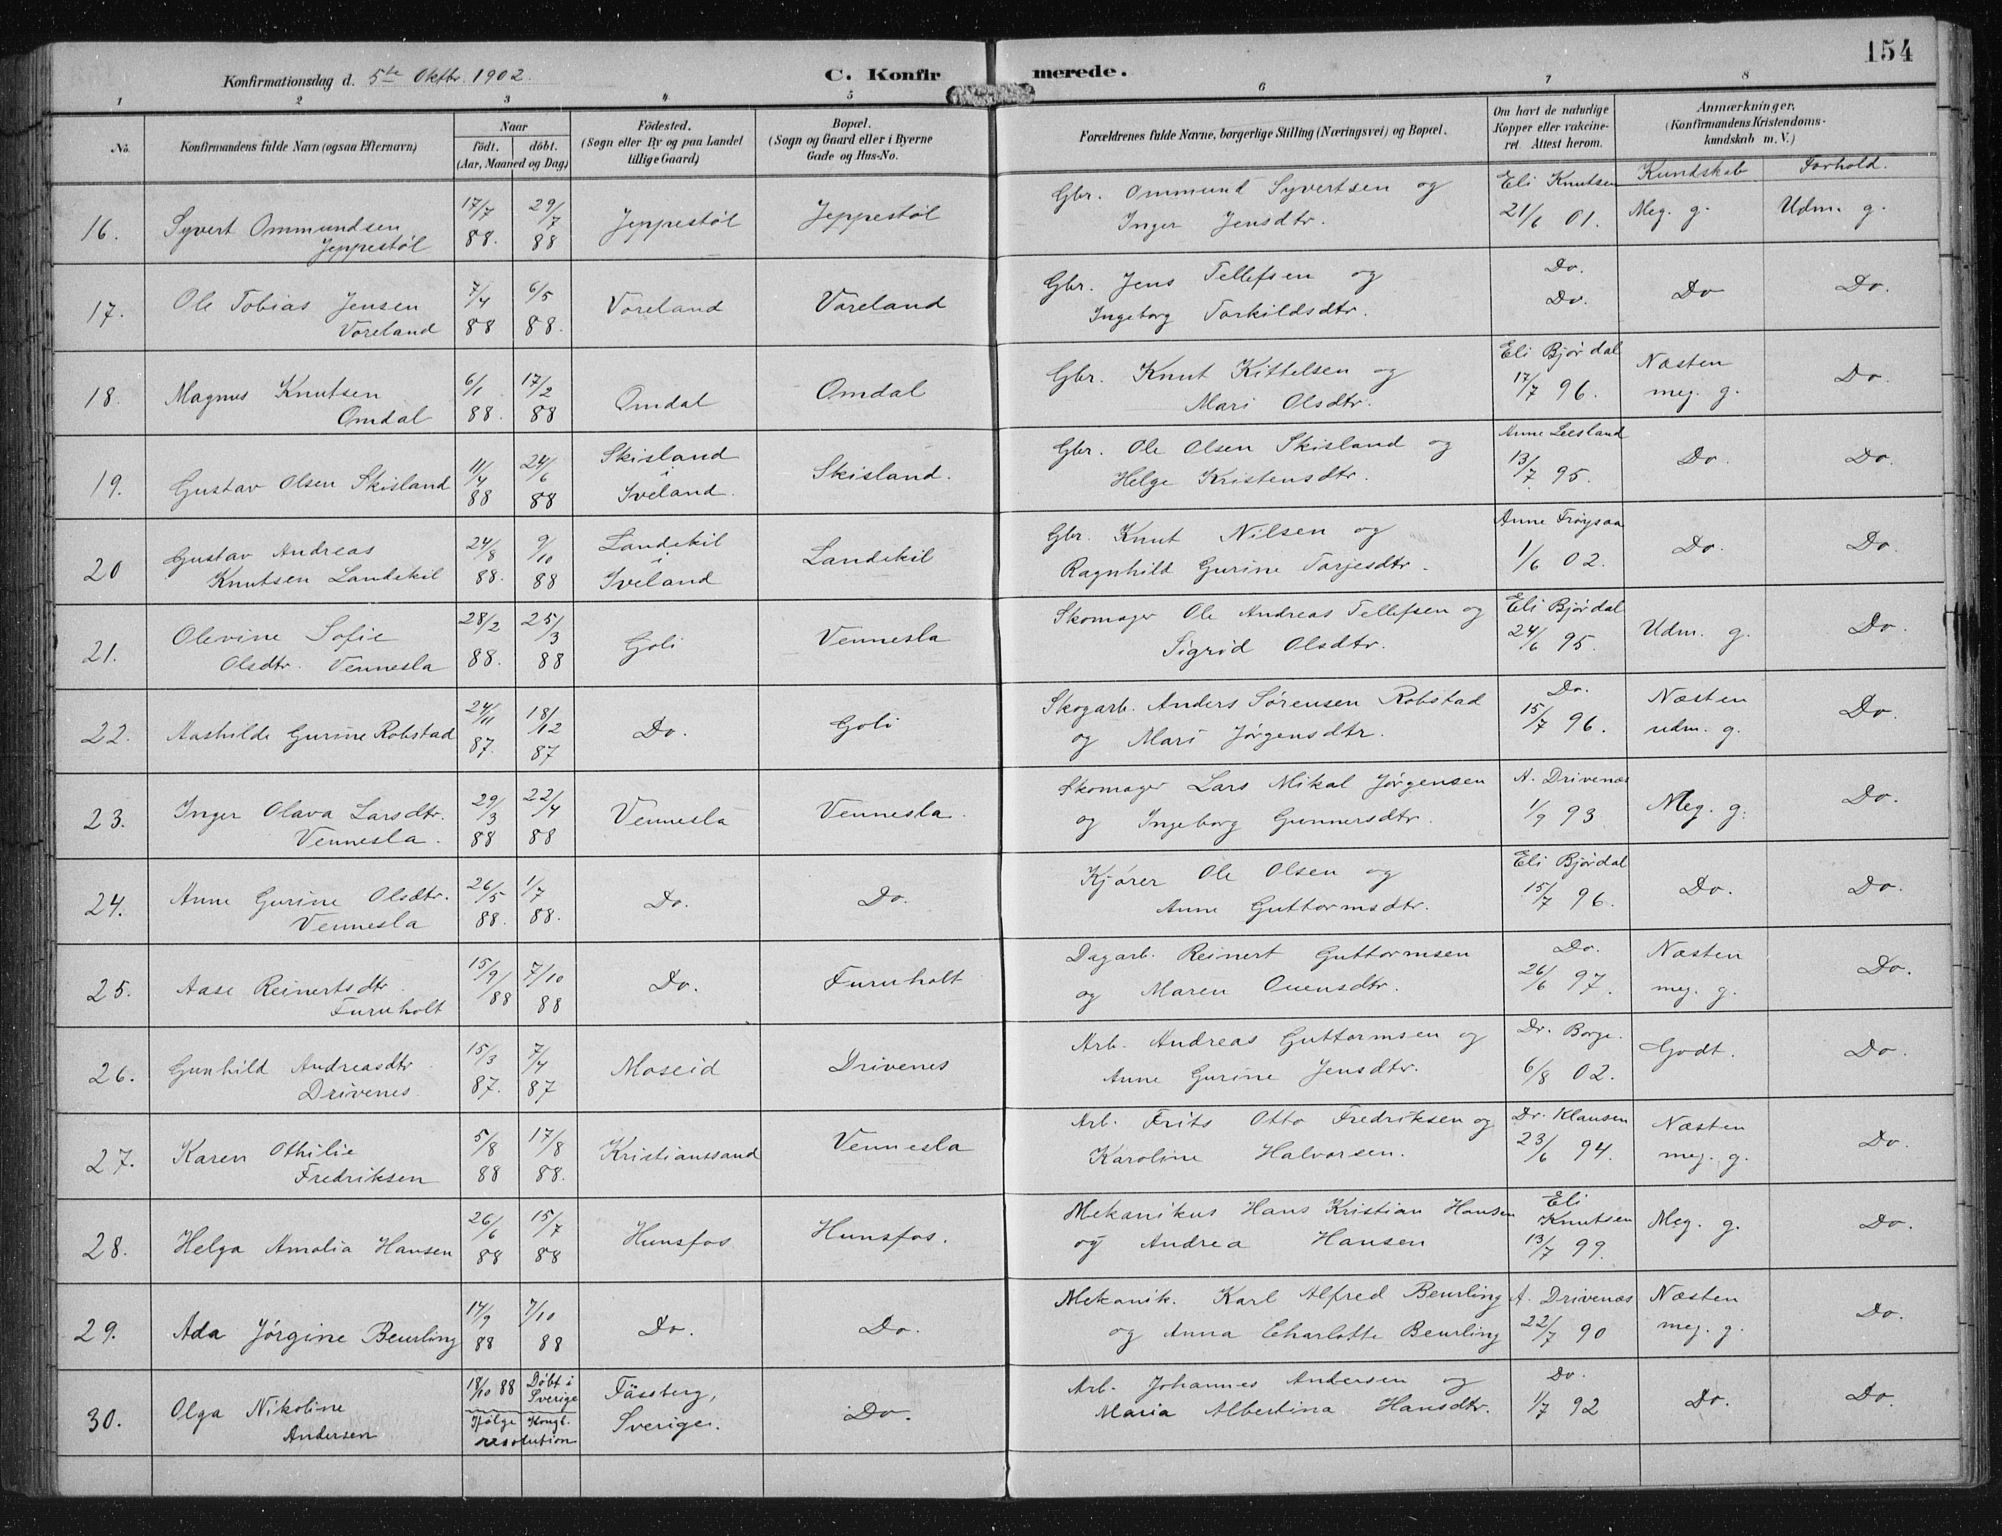 154
Konfirmationsdag d. 5te Oktbr. 1902.
C. Konfirmerede.
1 2 3 4 5 6 7 8
No.
Konfirmandens fulde Navn (ogsaa Efternavn)
Naar
födt. döbt.
(Aar, Maaned og Dag)
Födested.
(Sogn eller By og paa Landet
tillige Gaard)
Bopæl.
(Sogn og Gaard eller i Byerne
Gade og Hus-No.
Forældrenes fulde Navne, borgerlige Stilling (Næringsvei) og Bopæl.
Om havt de naturlige
Kopper eller vakcine-
ret. Attest herom.
Anmærkninger.
(Konfirmandens Kristendoms-
kundskab m. V.)
Kundskab Forhold.
16. Syvert Ommundsen
Jeppestøl
17/7 88. 29/7 88
Jeppestøl
Jeppestöl
Gbr. Ommund Syvertsen og
Inger Jensdtr.
Eli Knutsen
21/6 01.
Meg. g.
Udm. g.
17. Ole Tobias Jensen
Voreland
7/4 88 6/5 88.
Voreland
Voreland
Gbr. Jens Tellefsen og
Ingeborg Torkildsdtr.
Do.
Do.
Do
Do.
18. Magnus Knutsen
Omdal
6/1 88. 17/2 88
Omdal
Omdal
Gbr. Knut Kittelsen og
Mari Olsdtr.
Eli Bjørdal
17/7 96.
Næsten
meg. g.
Do.
19. Gustav Olsen Skisland
11/4 88 24/6 88
Skisland
i
Iveland.
Skisland.
Gbr. Ole Olsen Skisland og
Helge Kristensdtr.
Anne Leesland
13/7 95.
Do.
Do.
20 Gustav Andreas
Knutsen Landekil
24/8 88. 9/10 88
Landekil
i
Iveland
Landekil
Gbr. Knut Nilsen og
Ragnhild Gurine Tarjesdtr.
Anne Frøysaa
1/6 02.
Do.
Do.
21. Olevine Sofie
Olsdtr. Vennesla
28/2 88. 25/3 88
Goli
Vennesla
Skomager Ole Andreas Tellefsen og
Sigrid Olsdtr.
Eli Bjørdal
24/6 95.
Udm. g.
Do.
22. Mathilde Gurine Robstad
24/11 87. 18/12 87
Do.
Goli
Skogarb. Anders Sørensen Robstad
og Mari Jørgensdtr.
Do.
15/7 96.
Næsten
udm. g.
Do.
23. Inger Olava Larsdtr.
Vennesla.
29/3 88 22/4 88
Vennesla
Vennesla.
Skomager Lars Mikal Jørgensen
og Ingeborg Gunnersdtr.
A. Drivenæs
1/9 93
Meg. g.
Do.
24. Anne Gurine Olsdtr.
Vennesla
26/5 88. 1/7 88.
Do.
Do.
Kjører Ole Olsen og
Anne Guttormsdtr.
Eli Bjørdal
15/7 96.
Do.
Do.
25. Aase Reinertsdtr.
Furuholt
15/9/88 7/10 88
Do.
Furuholt
Dagarb. Reinert Guttormsen
og Maren Ouensdtr.
Do.
26/6 97.
Næsten
meg. g.
Do.
26. Gunhild Andreasdtr
Drivenes.
15/3 87. 7/4 87
Moseid
Drivenes
Arb. Andreas Guttormsen og
Anne Gurine Jensdtr.
Dr. Borge.
6/8 02.
Godt.
Do.
27. Karen Othilie
Fredriksen
5/8 88 17/8 88.
Kristianssand
Vennesla
Arb. Frits Otto Fredriksen og
Karoline Halvorsen.
Dr. Klausen
23/6 94.
Næsten
meg. g.
Do.
28. Helga Amalia Hansen
26/6 88 15/7 88
Hunsfos
Hunsfos.
Mekanikus Hans Kristian Hansen
og Andrea Hansen
Eli
Knutsen
13/7 99.
Meg. g.
Do.
29. Ada Jørgine Beurling
14/9 88 7/10 88
Do.
Do.
Mekanik. Karl Alfred Beurling
og Anna Charlotte Beurling
A. Drivenæs
22/7 90
Næsten
meg. g.
Do.
30. Olga Nikoline
Andersen
18/10 88 Døbt i
Sverige
Ifølge Kongl.
resolution
Fässberg,
Sverige.
Do.
Arb. Johannes Andersen og
Maria Albertina Hansdtr.
Do.
1/7 92
Do.
Do.